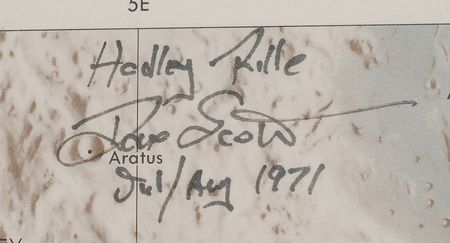 5E
Hadley Rille
Dave Scott
Aratus
Jul/Aug 1971